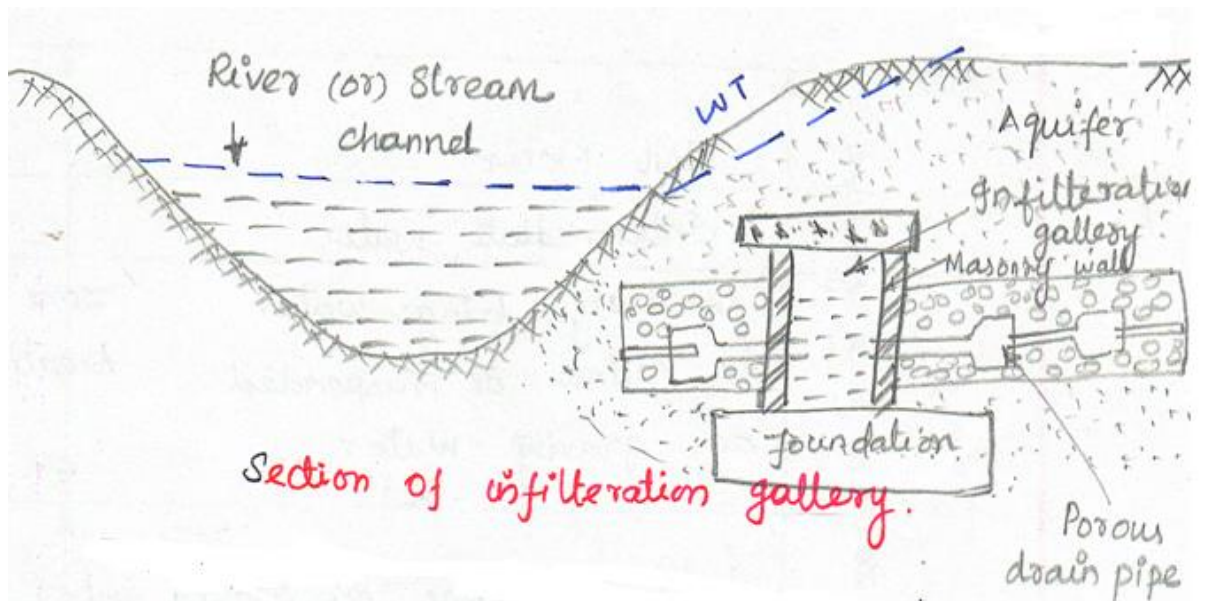 River (or) Stream
channel
WT
Aquifer
Infilteration
gallery
Masonry wall
foundation
Section of infilteration gallery.
Porous
drain pipe